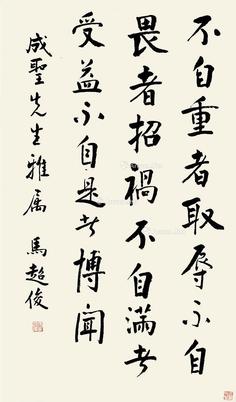 不自重者取辱不自
畏者招禍不自滿者
受益不自是者博聞
成聖先生雅屬 馬超俊